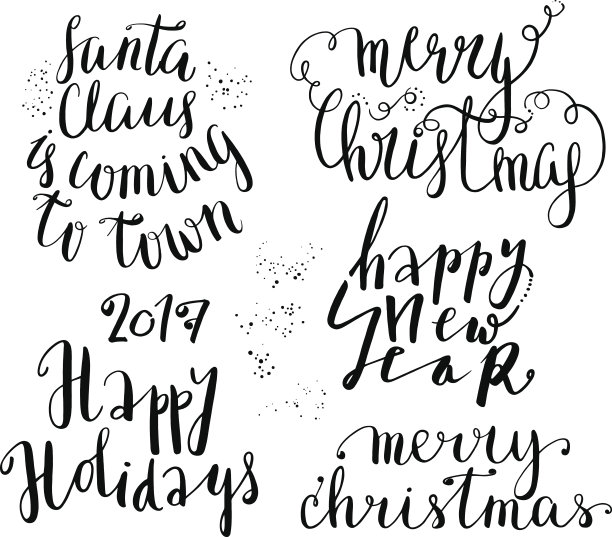 Santa
Claus
is coming
to town
merry
Christmas
happy
new
yeaR
2017
Happy
Holidays
merry
christmas